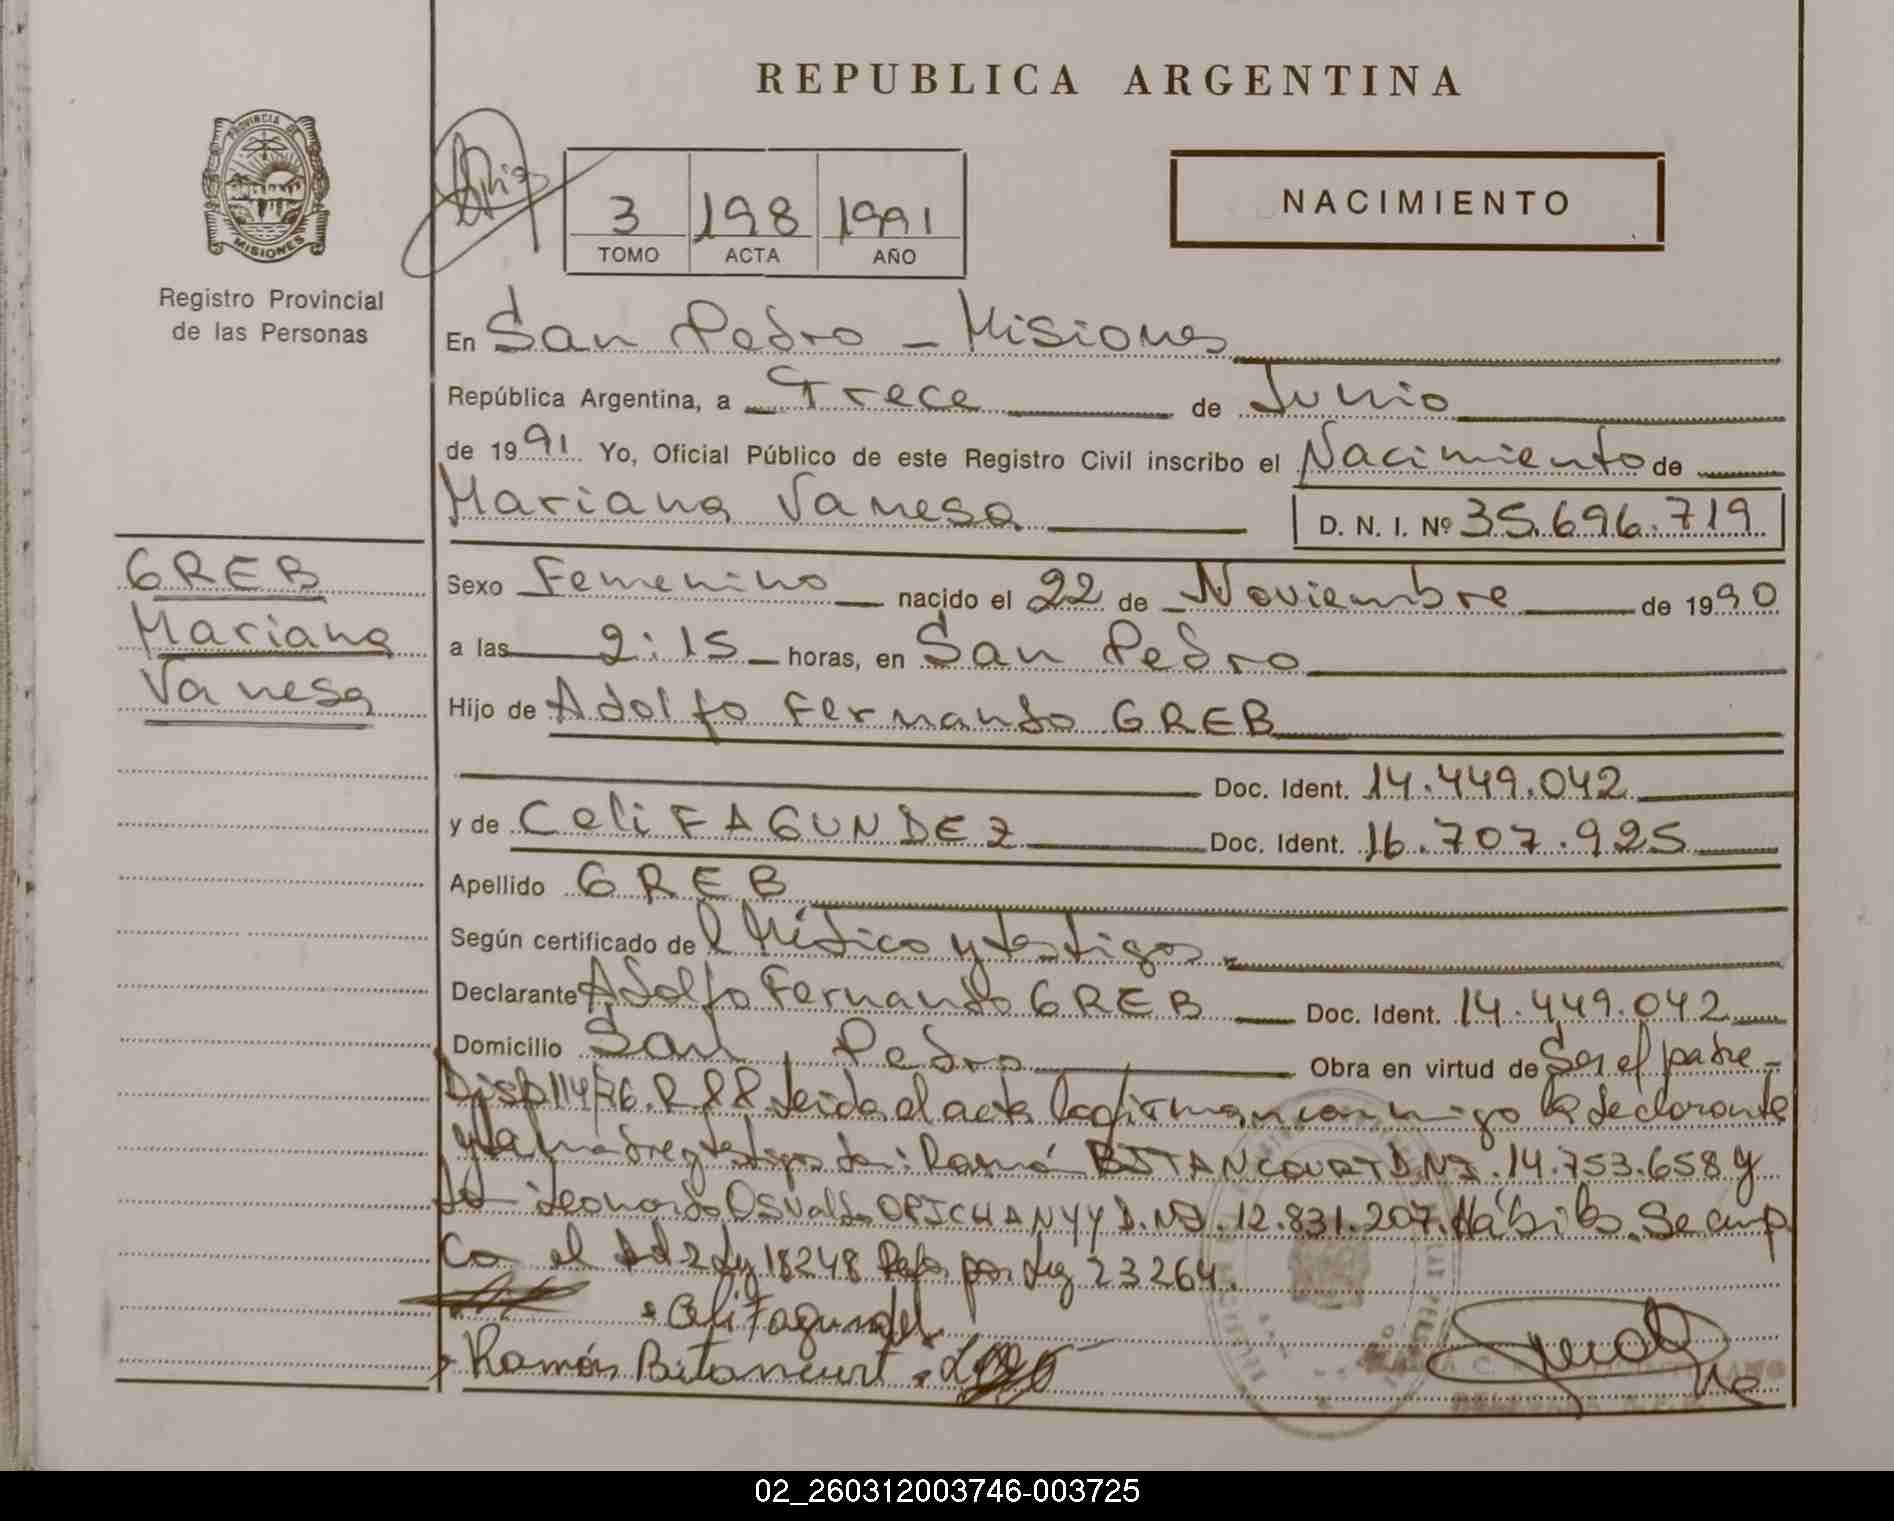 REPUBLICA ARGENTINA
PROVINCIA DE
MISIONES
Registro Provincial
de las Personas
3 198 1991
TOMO ACTA AÑO
NACIMIENTO
En San Pedro - Misiones
República Argentina, a Trece de Junio
de 1991 Yo, Oficial Público de este Registro Civil inscribo el Nacimiento de
Mariana Vanesa D. N. I. Nº 35.696.719
GREB
Mariana
Vanesa
Sexo Femenino nacido el 22 de Noviembre de 1990
a las 2:15 horas, en San Pedro
Hijo de Adolfo Fernando GREB
Doc. Ident. 14.449.042
y de Celi FAGUNDEZ Doc. Ident. 16.707.925
Apellido GREB
Según certificado del Médico y testigos
Declarante Adolfo Fernando GREB Doc. Ident. 14.449.042
Domicilio San Pedro Obra en virtud de Ser el padre -
Disp 114/76. R Leida el acta la firman conmigo la declarante
y la madre y testigos Ramón BITANCOURT D.NI. 14.753.658 y
Leonardo Osvaldo D.NI. 12.831.207. Hábiles. Se cump
Co el 2 Ley 18248 Ref. por Ley 23264.
Celi Fagundez
Ramón Bitancurt
02_260312003746-003725